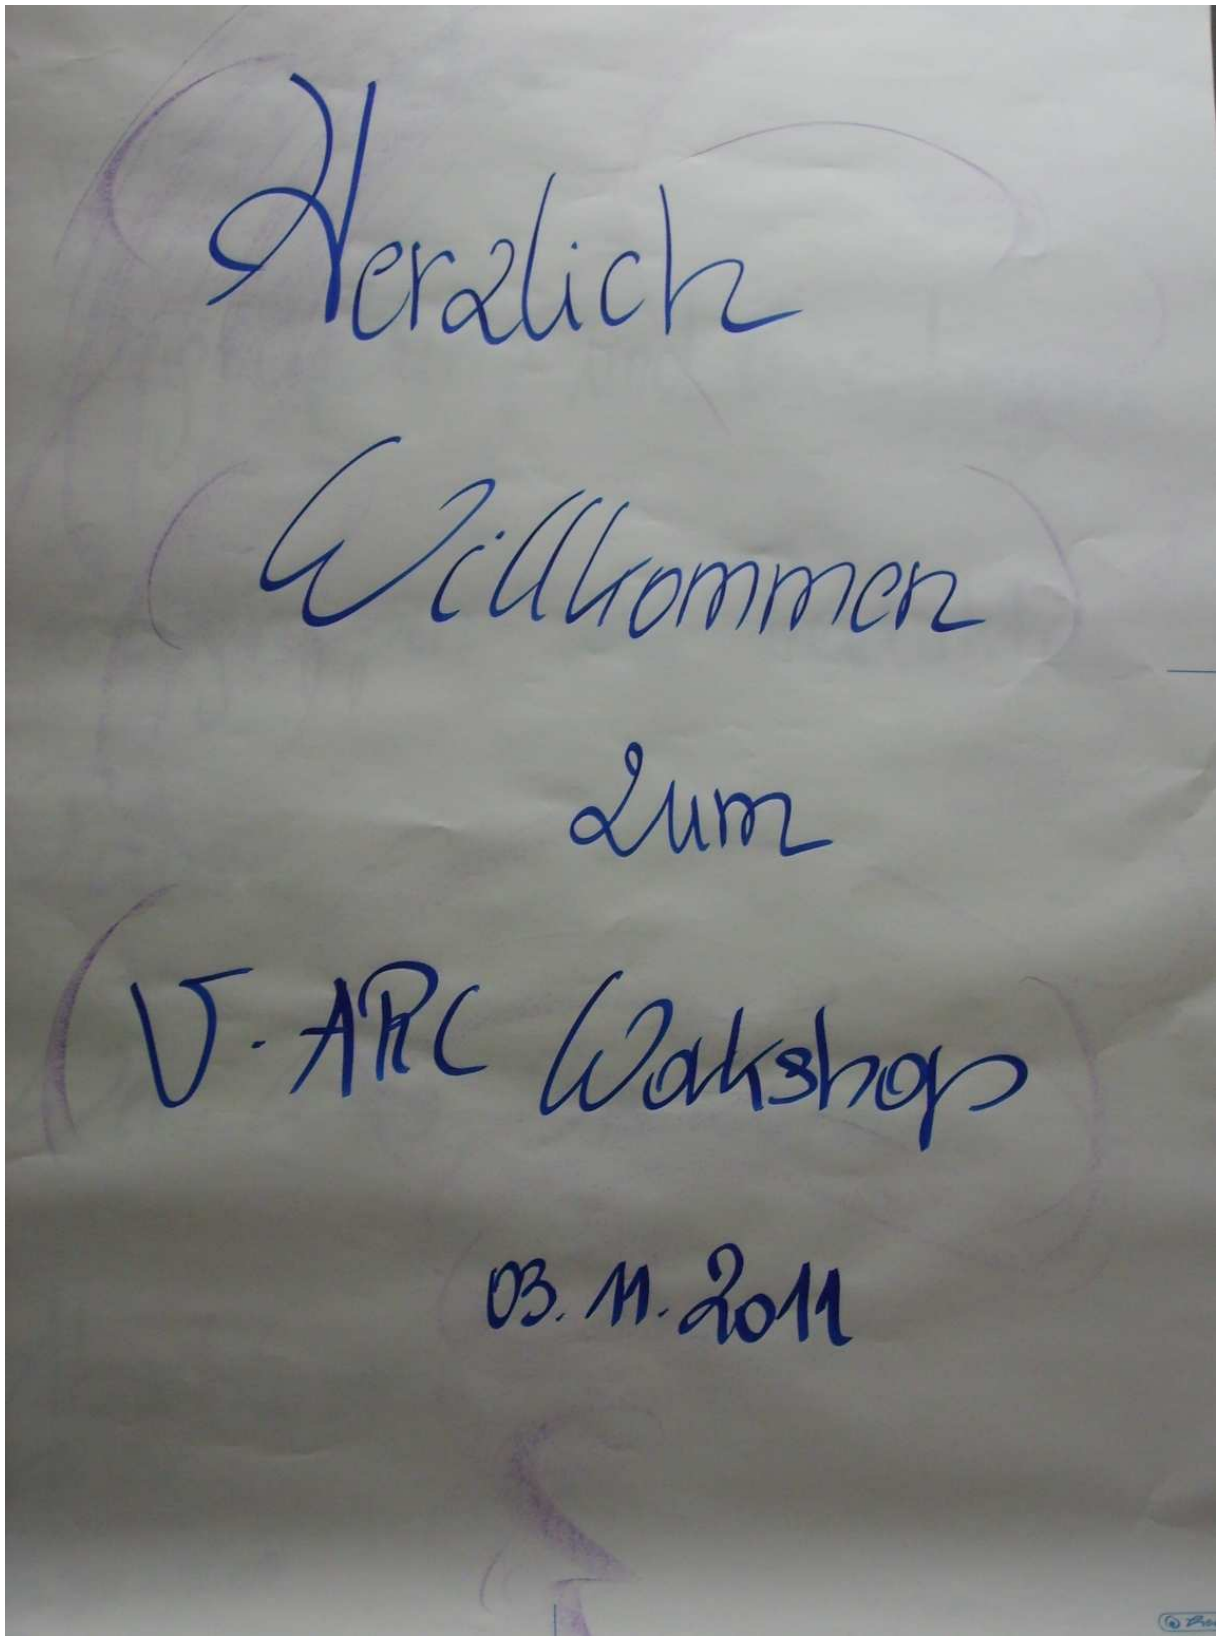 Herzlich
Willkommen
zum
V-ARC Wokshop
03.11.2011